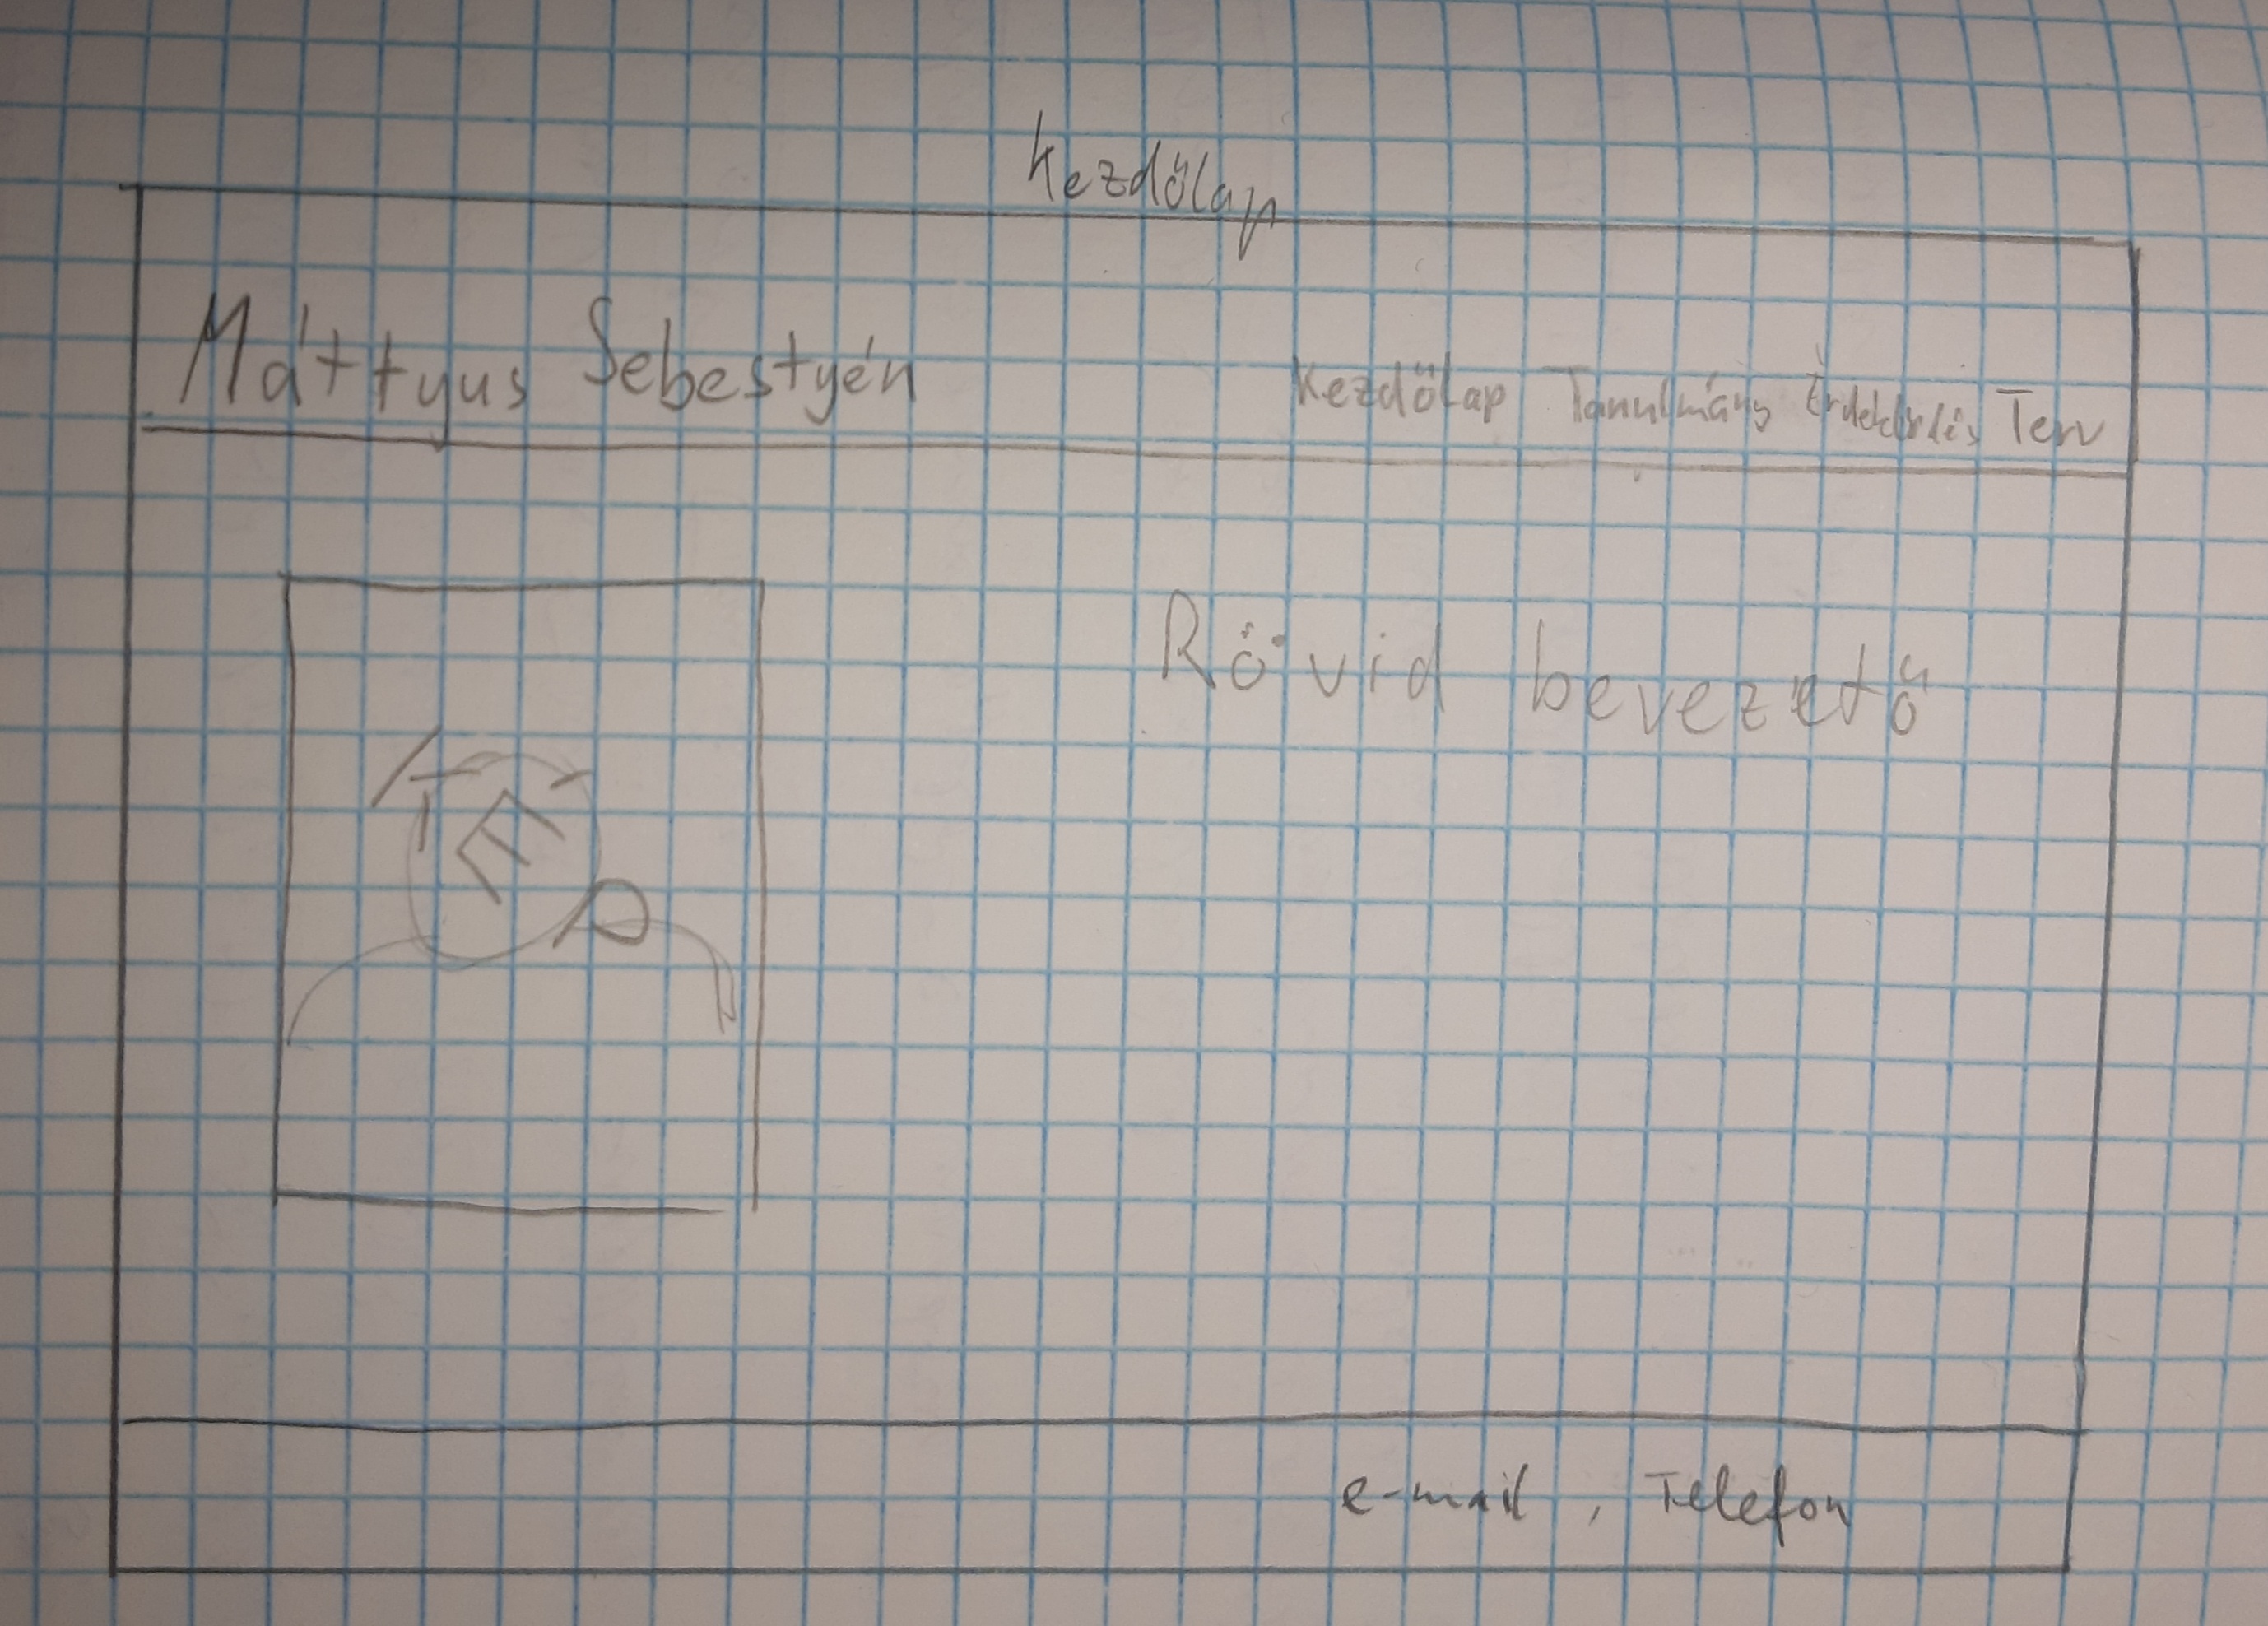 Kezdőlap
Máttyus Sebestyén Kezdőlap Tanulmány Érdeklődés Terv
Rövid bevezető
KÉP
e-mail, Telefon